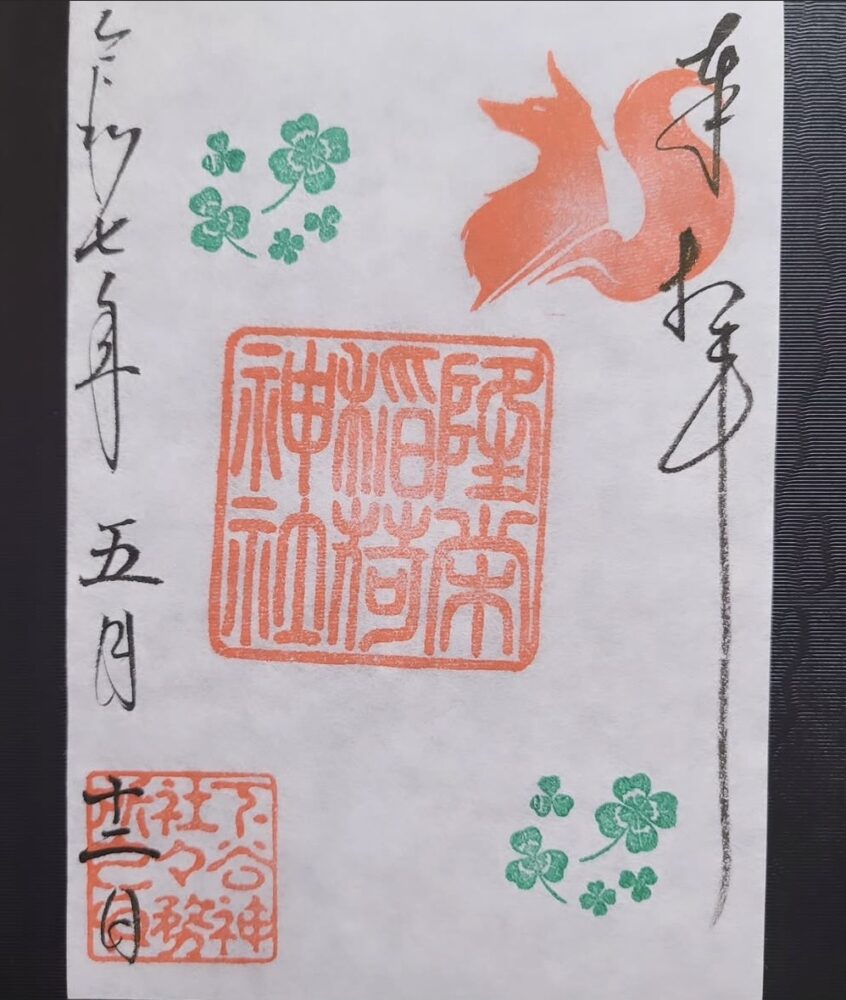 奉拝
隆栄
稲荷
神社
令和七年五月十二日
下谷神
社々務
所之印